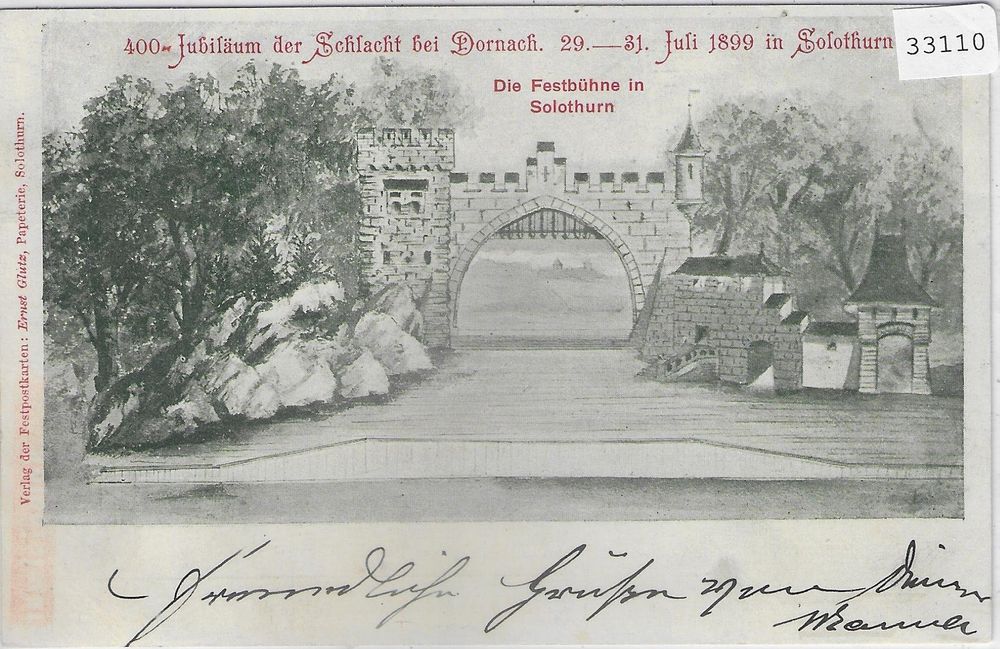 400. Jubiläum der Schlacht bei Dornach. 29.—31. Juli 1899 in Solothurn
33110
Die Festbühne in
Solothurn
Verlag der Festpostkarten: Ernst Glutz, Papeterie, Solothurn.
Freundliche Grüße von